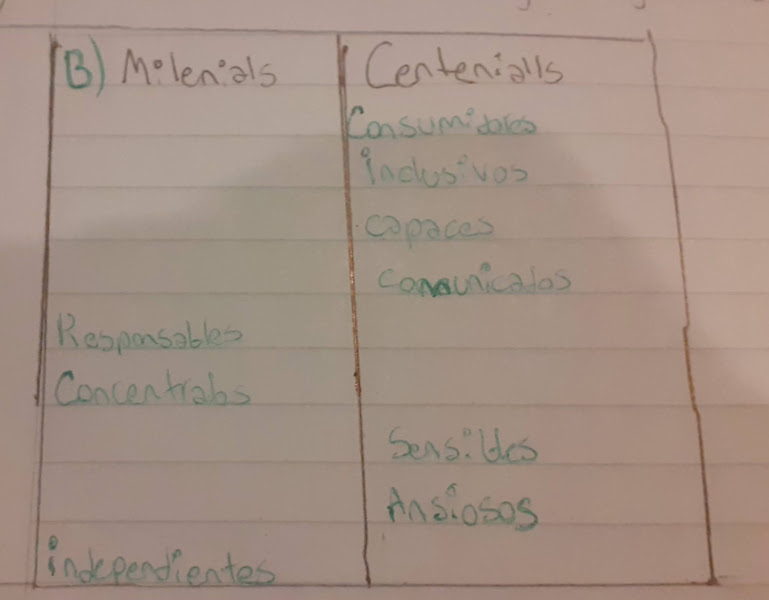 B) Milenials Centenialls
Consumidores
inclusivos
capaces
comunicados
Responsables
Concentrados
Sensibles
Ansiosos
independientes